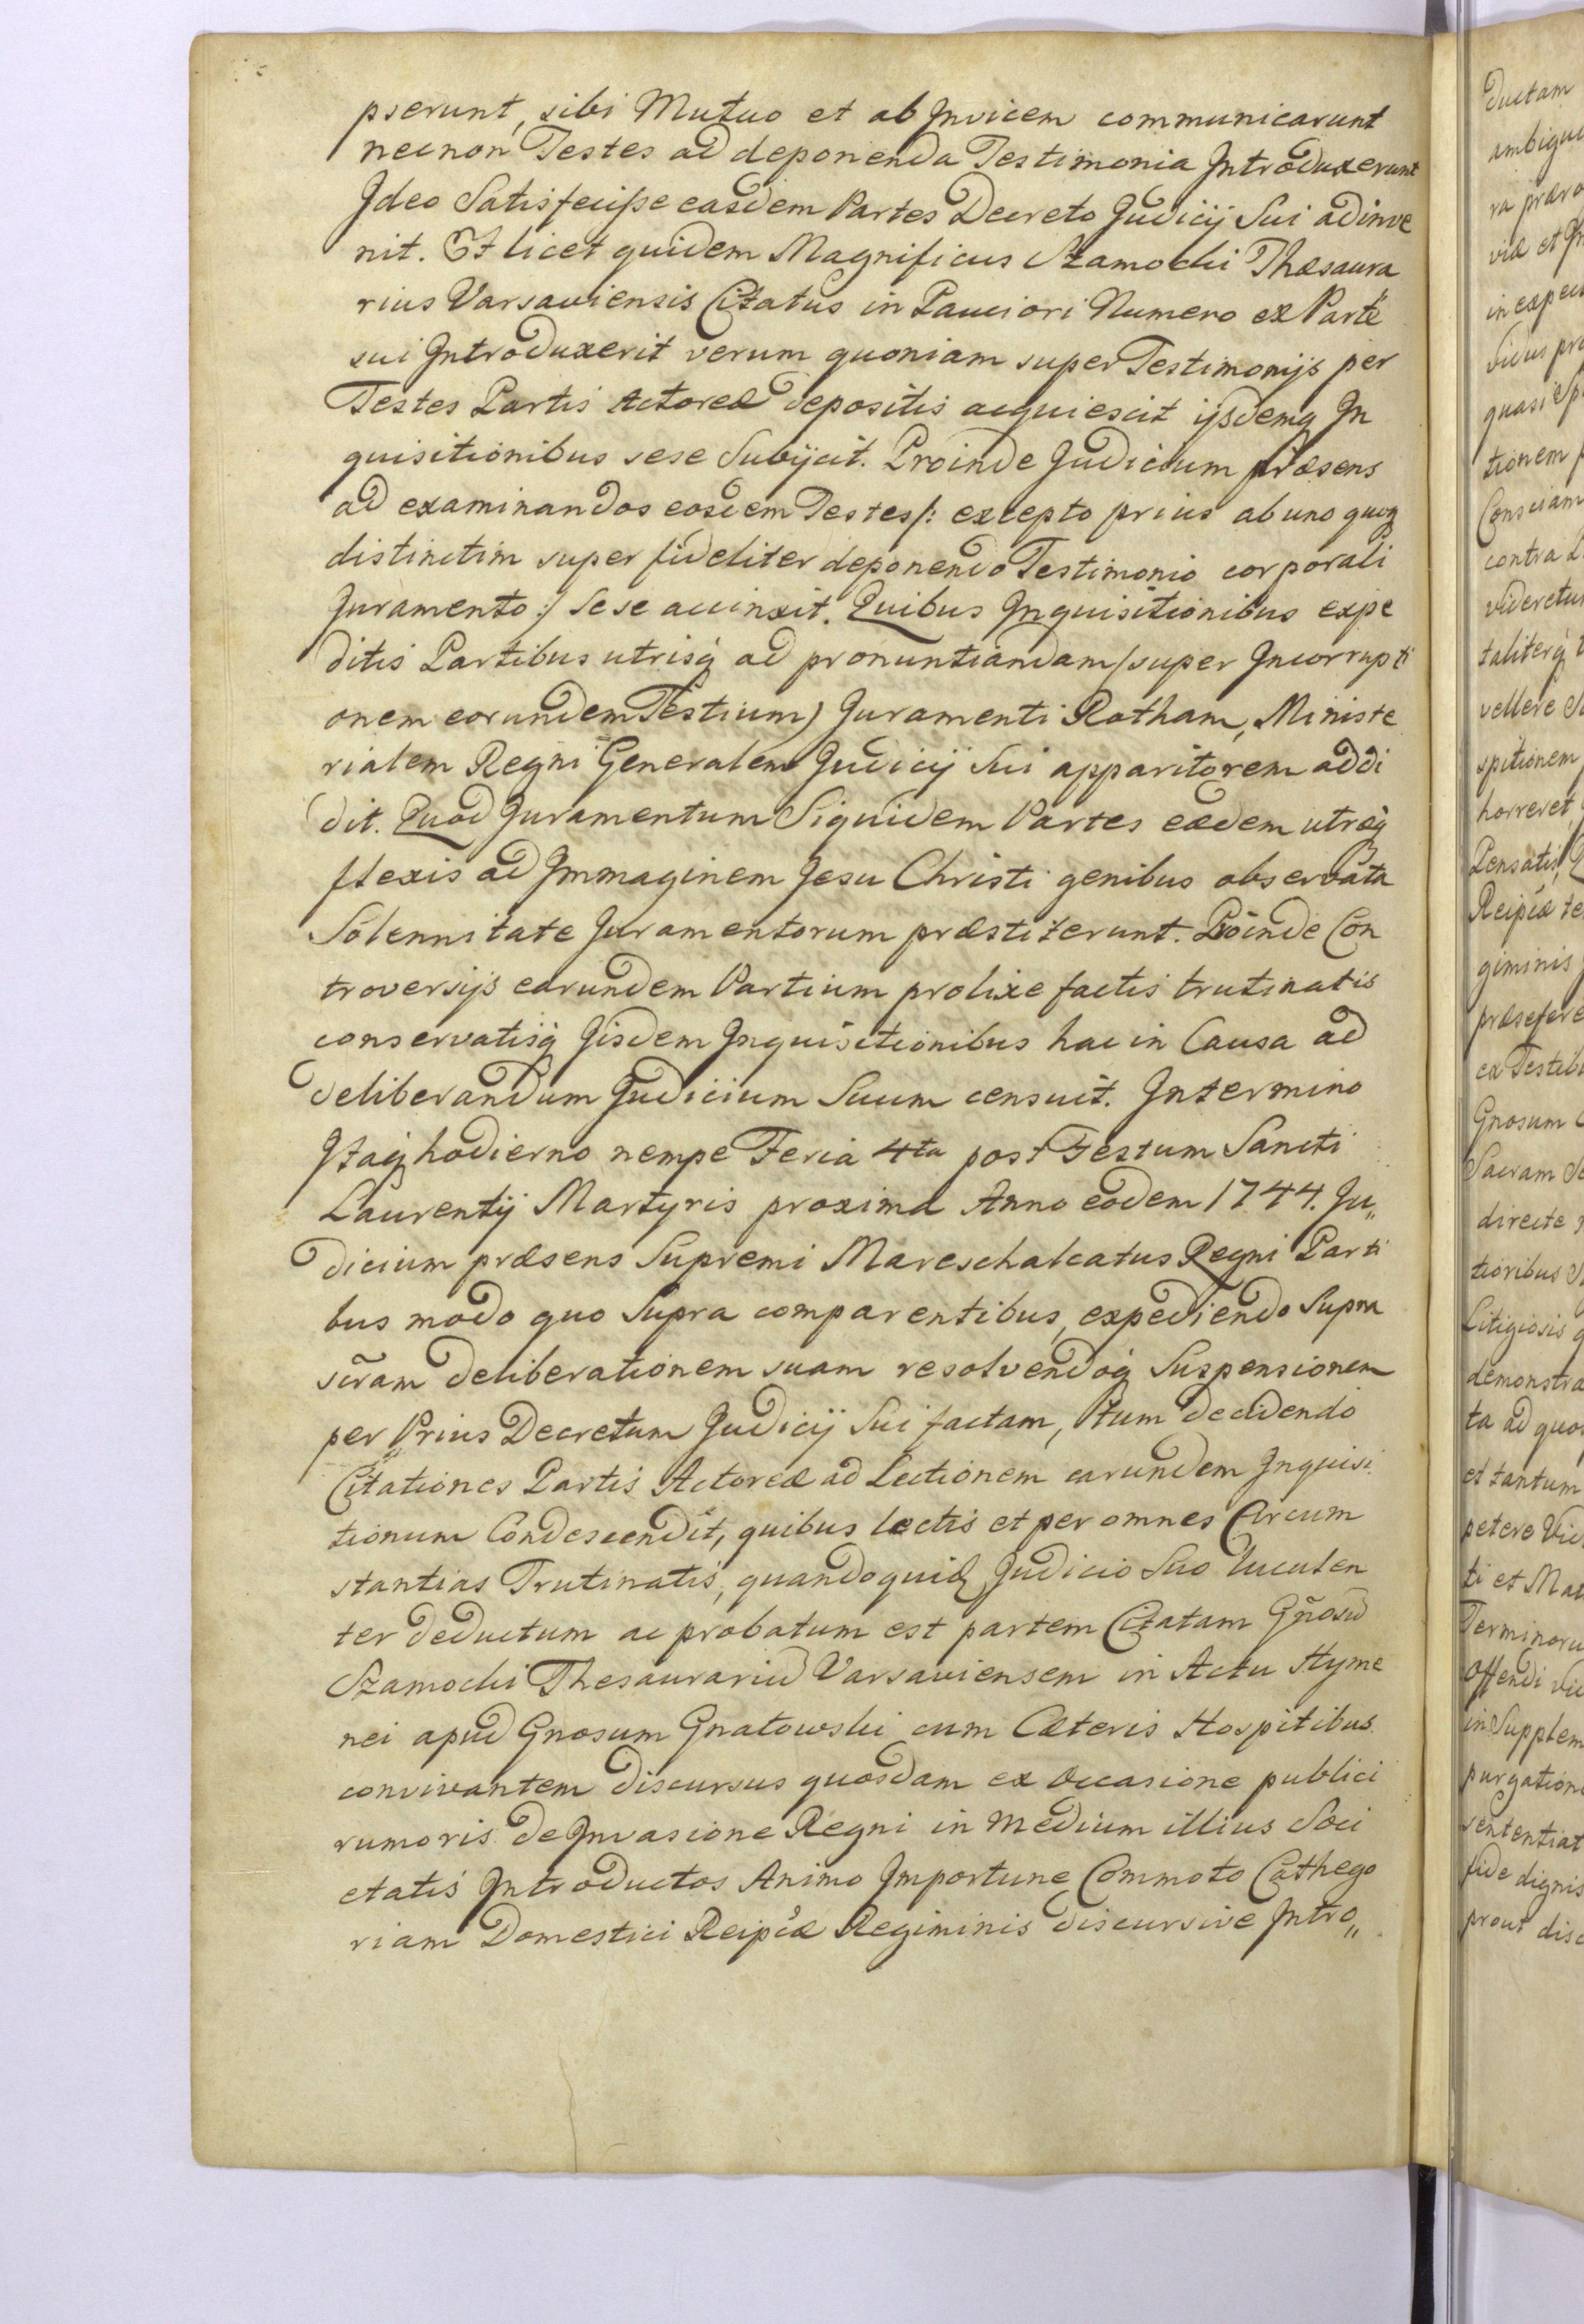 pserunt, sibi Mutuo et ab Invicem communicarunt
necnon Testes ad deponenda Testimonia Introduxerunt
Ideo Satisfecisse easdem Partes Decreto Judicij Sui adinve
nit. Et licet quidem Magnificus Szamocki Thæsaura
rius Varsaviensis Citatus in Pauciori Numero ex Parte
sui Introduxerit verum quoniam super Testimonijs per
Testes Partis Actoreæ depositis acquiescit ijsdemq In
quisitionibus sese Subijcit. Proinde Judicium præsens
ad examinandos eosdem Testes /: excepto prius ab uno quoq
distinctim super fideliter deponendo Testimonio corporali
Juramento :/ sese accinxit. Quibus Inquisitionibus expe
ditis Partibus utrisq ad pronuntiandam /super Incorrupti
onem eorundem Testium) Juramenti Rotham, Ministe
rialem Regni Generalem Judicij Sui apparitorem addi
dit. Quod Juramentum Siquidem Partes eædem utræq
flexis ad Immaginem Jesu Christi genibus observata
Solennitate Juramentorum præstiterunt. Proinde Con
troversijs earundem Partium prolixe factis trutinatis
conservatisq Iisdem Inquisitionibus hac in Causa ad
deliberandum Judicium Suum censuit. In termino
Itaq hodierno nempe Feria 4ta post Festum Sancti
Laurentij Martyris proxima Anno eodem 1744. Ju„
dicium præsens Supremi Mareschalcatus Regni Parti
bus modo quo Supra comparentibus, expediendo Supra
scr̃am deliberationem suam resolvendoq Suspensionem
per Prius Decretum Judicij Sui factam, tum decidendo
Citationes Partis Actoreæ ad Lectionem earundem Inquisi
tionum Condescendit, quibus lectis et per omnes Circum
stantias Trutinatis, quandoquid Judicio Suo luculen
ter deductum ac probatum est partem Citatam Gñosū
Szamocki Thesaurariū Varsaviensem in Actu Hyme
nei apud Gnosum Gnatowski cum Cæteris Hospitibus
convivantem discursus quosdam ex Occasione publici
rumoris de Invasione Regni in Medium illius Soci
etatis Introductos Animo Importune Commoto Cathego
riam Domestici Reipcæ Regiminis discursive Intro„
ductam